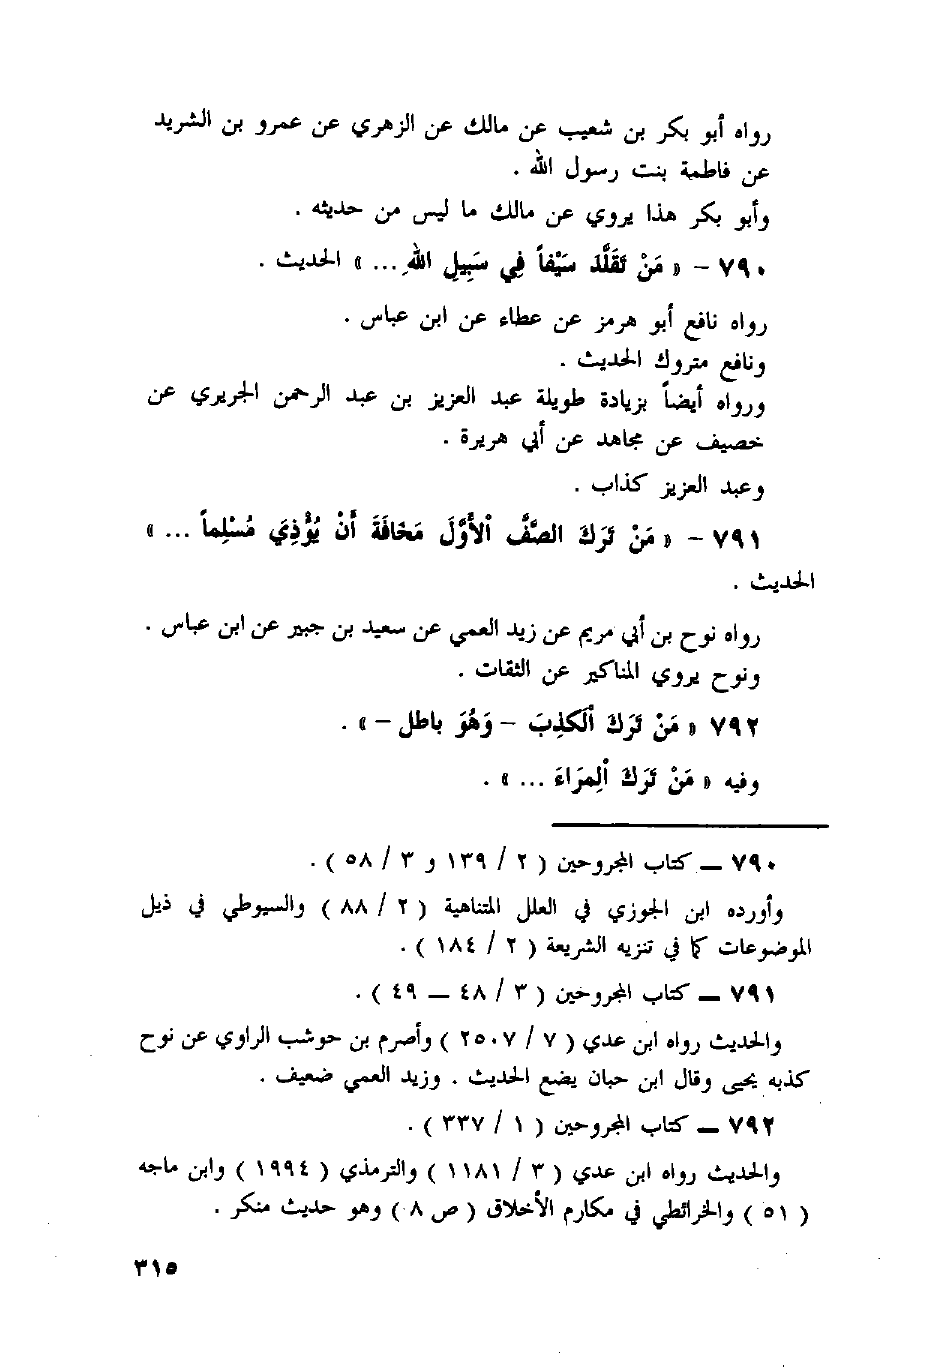 رواه أبو بكر بن شعيب عن مالك عن الزهري عن عمرو بن الشريد
عن فاطمة بنت رسول الله .
وأبو بكر هذا يروي عن مالك ما ليس من حديثه .
٧٩٠ – « مَنْ تَقَلَّدَ سَيْفاً فِي سَبِيلِ اللهِ ... » الحديث .
رواه نافع أبو هرمز عن عطاء عن ابن عباس .
ونافع متروك الحديث .
ورواه أيضاً بزيادة طويلة عبد العزيز بن عبد الرحمن الجريري عن
خصيف عن مجاهد عن أبي هريرة .
وعبد العزيز كذاب .
٧٩١ – « مَنْ تَرَكَ الصَّفَّ ٱلأَوَّلَ مَخَافَةَ أَنْ يُؤْذِيَ مُسْلِماً ... »
الحديث .
رواه نوح بن أبي مريم عن زيد العمي عن سعيد بن جبير عن ابن عباس .
ونوح يروي المناكير عن الثقات .
٧٩٢ « مَنْ تَرَكَ ٱلكَذِبَ – وَهُوَ باطل – » .
وفيه « مَنْ تَرَكَ ٱلِمرَاءَ ... » .
٧٩٠ – كتاب المجروحين ( ٢ / ١٣٩ و ٣ / ٥٨ ) .
وأورده ابن الجوزي في العلل المتناهية ( ٢ / ٨٨ ) والسيوطي في ذيل
الموضوعات كما في تنزيه الشريعة ( ٢ / ١٨٤ ) .
٧٩١ – كتاب المجروحين ( ٣ / ٤٨ – ٤٩ ) .
والحديث رواه ابن عدي ( ٧ / ٢٥٠٧ ) وأصرم بن حوشب الراوي عن نوح
كذبه يحيى وقال ابن حبان يضع الحديث . وزيد العمي ضعيف .
٧٩٢ – كتاب المجروحين ( ١ / ٣٣٧ ) .
والحديث رواه ابن عدي ( ٣ / ١١٨١ ) والترمذي ( ١٩٩٤ ) وابن ماجه
( ٥١ ) والخرائطي في مكارم الأخلاق ( ص ٨ ) وهو حديث منكر .
٣١٥